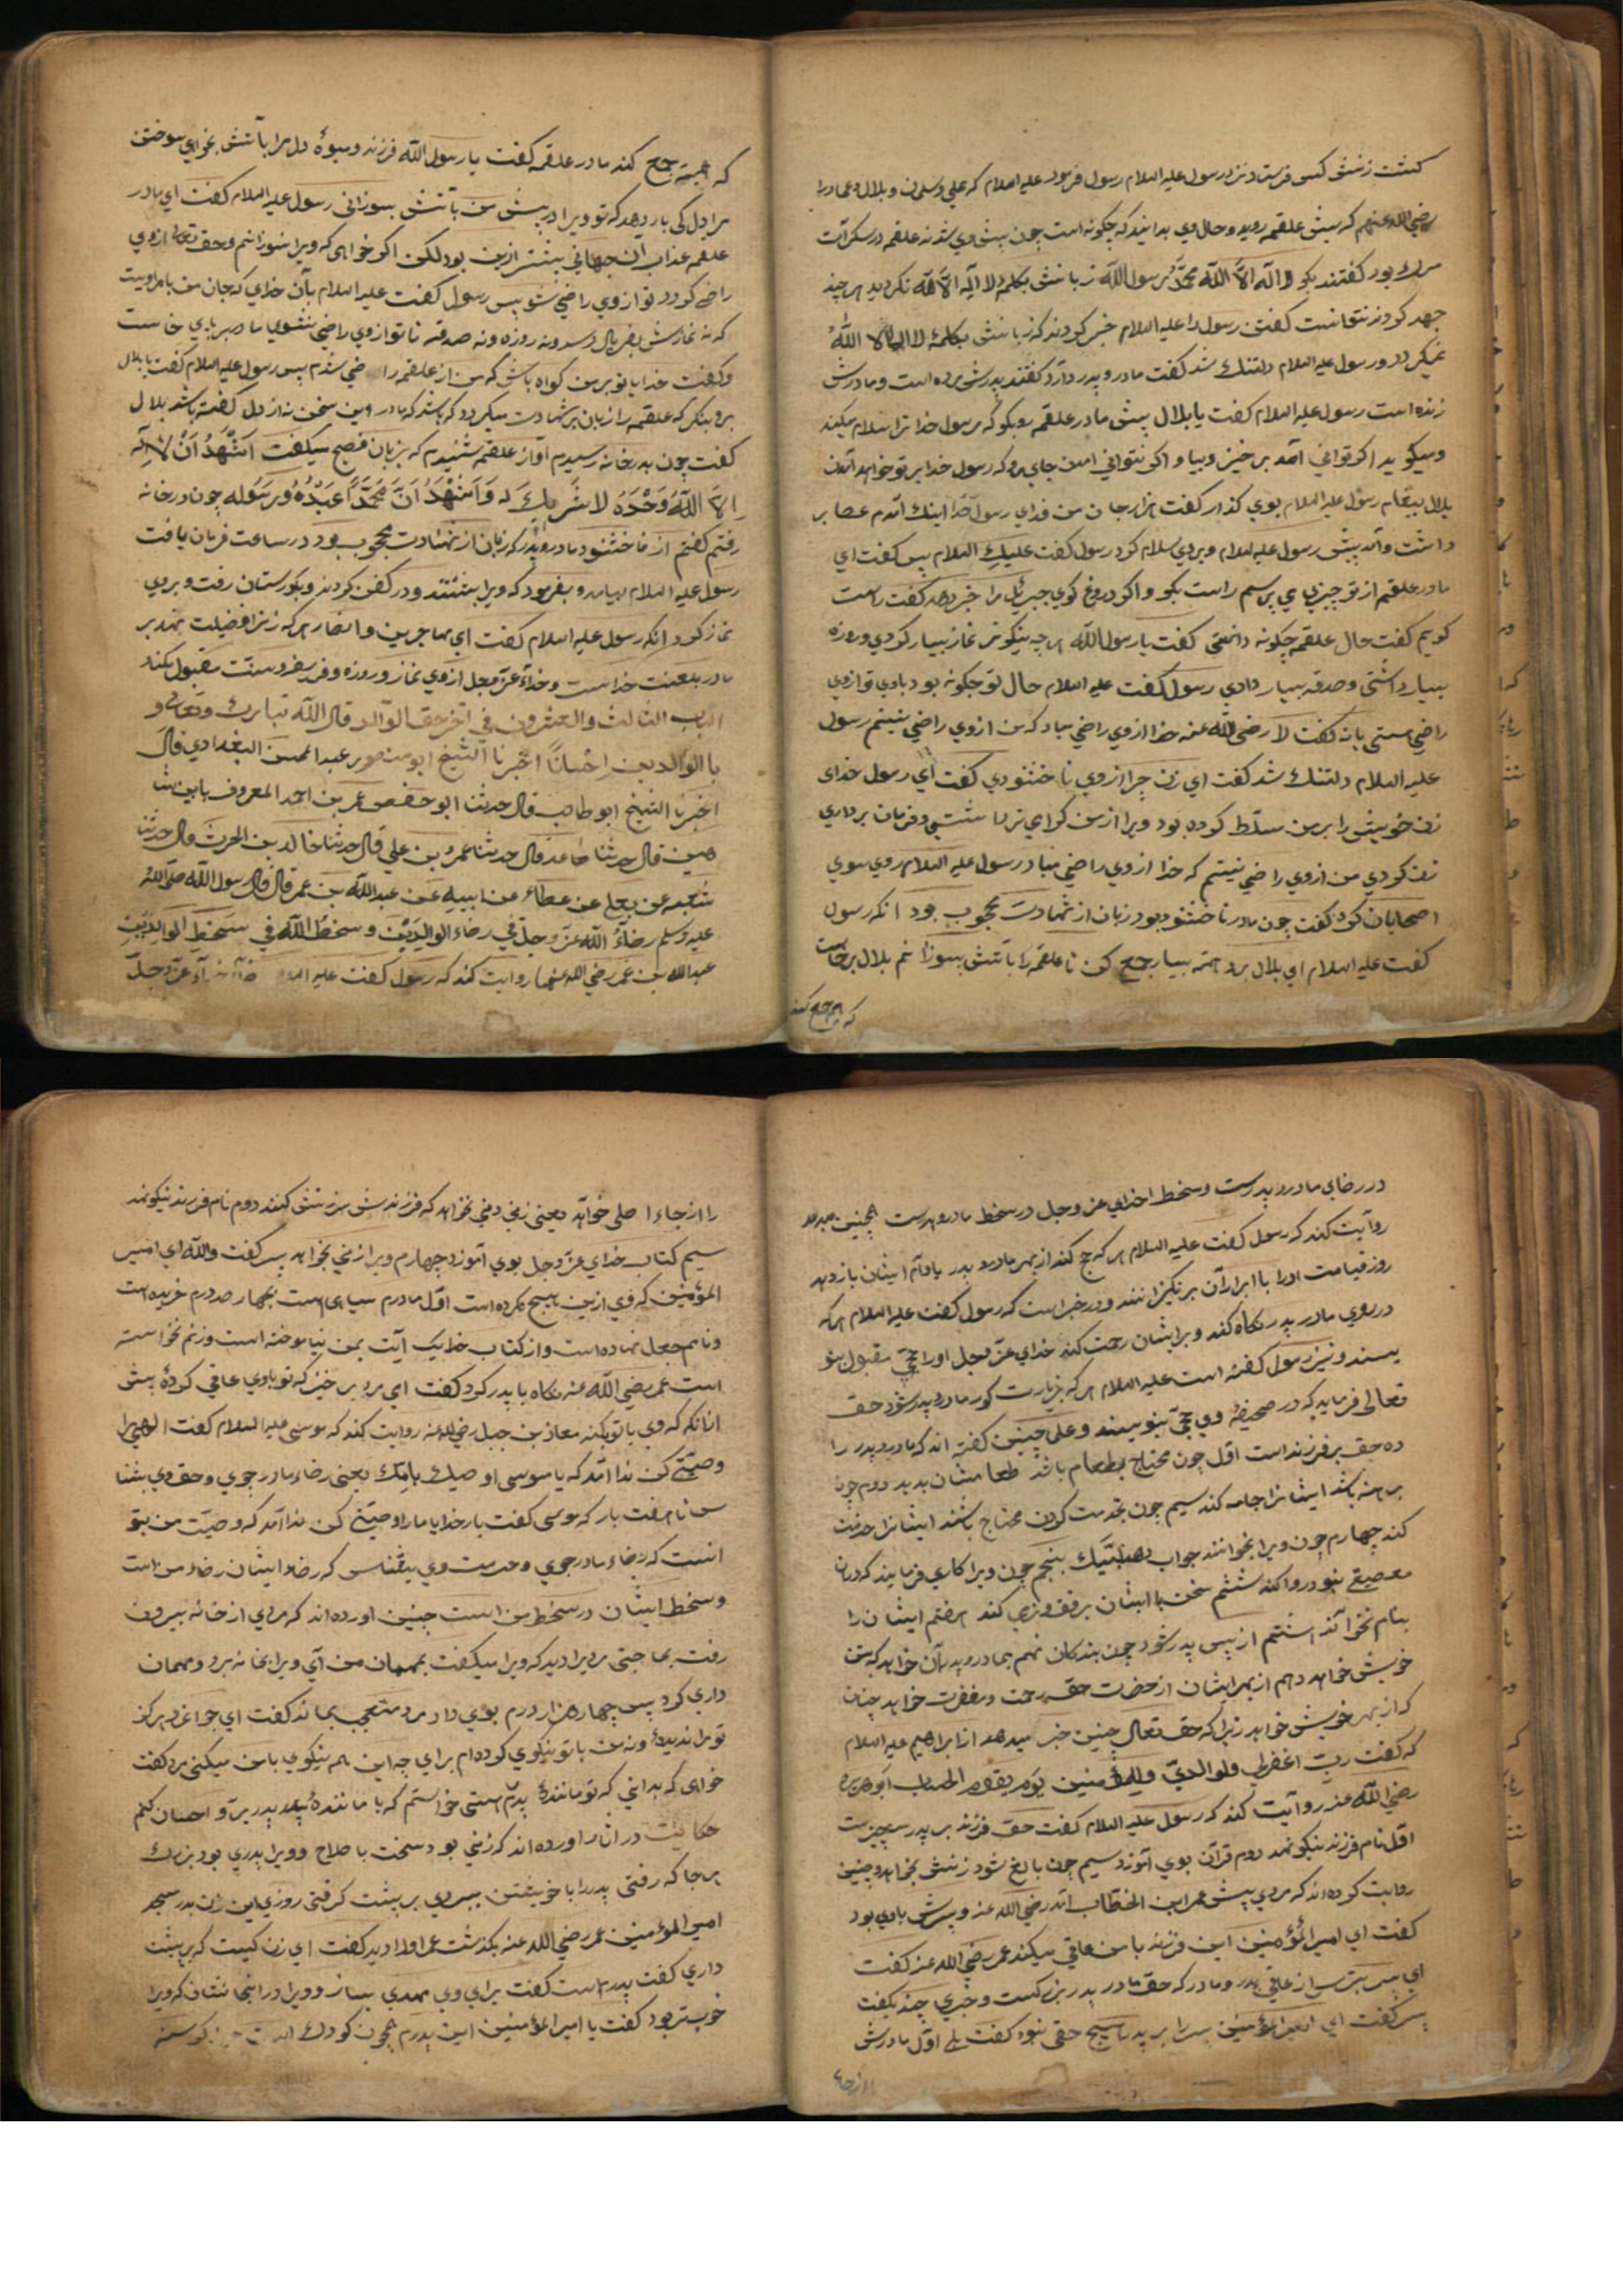 کشت زنش کس فرستاد نزد رسول علیه السلام رسول فرمود علیه السلام که علی و سلمن و بلال و عمار را
رضی الله عنهم که پیش علقمه روید و حال وی بدانید که چگونه است چون پیش وی شدند علقمه در سکرات
مرك بود گفتند بگو لا اله الا الله محمد رسول الله زبانش بكلمه لا اله الا الله نگردید هر چند
جهد کردند نتوانست گفتن رسول را علیه السلام خبر کردند که زبانش بکلمه لا اله الا الله
نمیگردد و رسول علیه السلام دلتنك شد گفت مادر و پدر دارد گفتند پدرش مرده است و مادرش
زنده است رسول علیه السلام گفت یا بلال پیش مادر علقمه رو بگو که رسول خدا ترا سلام میکند
و میگوید اگر توانی آمد برخیز و بیا و اگر نتوانی همین جای رو که رسول خدا بر تو خواهد آمدن
بلال پیغام رسول علیه السلام بوی گذار گفت هزار جان من فدای رسول خدا اینك آمدم عصا بر
داشت و آمد پیش رسول علیه السلام و بروی سلام کرد رسول گفت علیك السلام پس گفت ای
مادر علقمه از تو چیزی می پرسم راست بگو و اگر دروغ گوی جبرئیل مرا خبر دهد گفت راست
گویم گفت حال علقمه چگونه دانستی گفت یا رسول الله هر چه نیکوتر نماز بسیار کردی و روزه
بسیار داشتی و صدقه بسیار دادی رسول گفت علیه السلام حال تو چگونه بود با وی تو از وی
راضی هستی یا نه گفت لا رضی الله عنه خدا از وی راضی مباد که من از وی راضی نیستم رسول
علیه السلام دلتنك شد گفت ای زن چرا از وی ناخشنودی گفت ای رسول خدای
زن خویش را بر من مسلط کرده بود و یرا از من گرامی تر داشتی و فرمان برداری
زن کردی من از وی راضی نیستم که خدا از وی راضی مباد رسول علیه السلام روی سوی
اصحابان کرد گفت چون مادر ناخشنود بود زبان از شهادت محجوب بود انکه رسول
گفت علیه السلام ای بلال برو هیمه بسیار جمع کن تا علقمه را باتش بسوزانم بلال برخاست
که هیمه جمع کند
که هیمه جمع کند مادر علقمه گفت یا رسول الله فرزند و میوهٔ دل مرا بآتش بخواهی سوختن
مرا دل کی یار دهد که تو ویرا در پیش من باتش بسوزانی رسول علیه السلام گفت ای مادر
علقمه عذاب آن جهانی بیشتر ازین بود لکن اگر خواهی که ویرا نسوزانم و حق تعالی از وی
راضی گردد تو از وی راضی شو پس رسول گفت علیه السلام بآن خدای که جان من بامر اوست
که نه نمازش بفریاد رسد و نه روزه و نه صدقه تا تو از وی راضی نشوی مادر بپای خاست
و گفت خدایا تو بر من گواه باش که من از علقمه راضی شدم پس رسول علیه السلام گفت یا بلال
برو بنگر که علقمه را زبان بر شهادت میگردد که باشد که مادر این سخن نه از دل گفته باشد بلال
گفت چون بدر خانه رسیدم آواز علقمه شنیدم که بزبان فصیح میگفت اشهد ان لا اله
الا الله وحده لا شریك له و اشهد ان محمدا عبده و رسوله چون در خانه
رفتم گفتم از ناخشنود مادر و پدر که زبان از شهادت محجوب بود در ساعت فرمان یافت
رسول علیه السلام بیامد و بفرمود که ویرا بشستند و در کفن کردند و بگورستان رفت و بروی
نماز کرد و انکه رسول علیه السلام گفت ای مهاجرین و انصار هر که زنرا فضیلت نهد بر
مادر بلعنت خداست و خداء عز و جل از وی نماز و روزه و فریضه و سنت مقبول نکند
الباب الثالث و العشرون فی آخر حق الوالد قال الله تبارك و تعالی و
بالوالدین احسانا اخبرنا الشیخ ابو منصور عبد المحسن البغدادی قال
اخبرنا الشیخ ابو طالب قال حدثنا ابو حفص عمر بن احمد المعروف بابن شا
هین قال حدثنا حامد قال حدثنا عمرو بن علی قال حدثنا خالد بن الحرث قال حدثنا
شعبه عن یعلی عن عطاء عن ابیه عن عبد الله بن عمر قال قال رسول الله صلی الله
علیه وسلم رضاء الله عز وجل فی رضاء الوالدین و سخط الله فی سخط الوالدین
عبد الله بن عمر رضی الله عنهما روایت کند که رسول گفت علیه السلام رضاء خداء عز و جل
در رضای مادر و پدرست و سخط خدای عز و جل در سخط مادر و پدرست همچنین
روایت کند که رسول گفت علیه السلام هر که حج کند از بهر مادر و پدر یا وام ایشان باز دهد
روز قیامت او را با ابراران برانگیزانند و در خبر است که رسول گفت علیه السلام هر که
در روی مادر پدر نکاه کند و بر ایشان رحمت کند خدای عز و جل او را حجی مقبول بنو
یسند و نیز رسول گفته است علیه السلام هر که بزیارت گور مادر و پدر شود حق
تعالی فرماید که در صحیفهٔ وی حجی بنویسند و علی چنین گفته اند که مادر و پدر را
ده حق بر فرزند است اول چون محتاج بطعام باشد طعامشان بدهد دوم چون
برهنه باشد ایشانرا جامه کند سیم چون بخدمت کردن محتاج باشند ایشانرا خدمت
کند چهارم چون ویرا بخوانند جواب دهد لبیك پنجم چون ویرا کاری فرمایند که دران
معصیتی نبود روا کند ششم سخن با ایشان برفق و نرمی کند هفتم ایشان را
بنام نخواند هشتم از پس پدر شود چون بندگان نهم بمادر و پدر آن خواهد که بتن
خویش خواهد دهم از بهر ایشان از حضرت حق رحمت و مغفرت خواهد چنان
که از بهر خویش خواهد زیرا که حق تعالی چنین خبر میدهد از ابراهیم علیه السلام
که گفت رب اغفرلی ولوالدی وللمؤمنین یوم یقوم الحساب ابو هریره
رضی الله عنه روایت کند که رسول علیه السلام گفت حق فرزند بر پدر سه چیزست
اول نام فرزند نیکو نهد دوم قرآن بوی آموزد سیم چون بالغ شود زنش بخواهد و چنین
روایت کرده اند که مردی پیش عمر ابن الخطاب آمد رضی الله عنه و پسرش با وی بود
گفت ای امیر المؤمنین این فرزند با من عاقی میکند عمر رضی الله عنه گفت
ای پسر بترس از عاقی پدر و مادر که حق مادر پدر بزرکست و خبری چند بگفت
پسر گفت ای امیر المؤمنین پسر را بر پدر هیچ حقی نبود گفت بلی اول مادرش
را از جاء
را از جاء اصلی خواهد یعنی زنی دنی نخواهد که فرزندش سرزنش کنند دوم نام فرزند نیکو نهد
سیم کتاب خدای عز و جل بوی آموزد چهارم ویرا زنی بخواهد پسر گفت والله ای امیر
المؤمنین که وی ازین هیچ نکرده است اول مادرم سیاهی است بچهار صد درم خریده است
و نامم جعل نهاده است و از کتاب خدا یك آیت بمن نیاموخته است و زنم نخواسته
است عمر رضی الله عنه نکاه با پدر کرد گفت ای مرد برخیز که تو با وی عاقی کردهٔ پیش
از انکه که وی با تو بکند معاذ بن جبل رضی الله عنه روایت کند که موسی علیه السلام گفت الهی مرا
وصیتی کن ندا آمد که یا موسی اوصیك بامك یعنی رضاء مادر جوی و حق وی بشنا
س تا هفت بار که موسی گفت بار خدایا مارا وصیتی کن ندا آمد که وصیت من بتو
انست که رضاء مادر جوی و حرمت وی بشناس که رضاء ایشان رضاء من است
و سخط ایشان در سخط من است چنین آورده اند که مردی از خانه بیرون
رفت بحاجتی مردیرا دید که ویرا میگفت بمهمان من آی ویرا بخانه برد و مهمان
داری کرد پس چهار هزار درم بوی داد مرد متعجب بماند گفت ای جوانمرد هرگز
تو مرا ندیدهٔ و نه من با تو نیکوی کرده ام برای چه این همه نیکوی با من میکنی مرد گفت
خواهی که بدانی که تو مانندهٔ پدرم هستی خواستم که با مانندهٔ پدر بر و احسان کنم
حکایت در آثار آورده اند که زنی بود سخت با صلاح و ویرا پدری بود بزرك
هر جا که رفتی پدر را با خویشتن ببردی بر پشت گرفتی روزی این زن بدر مسجد
امیر المؤمنین عمر رضی الله عنه بگذشت عمر او را دید گفت ای زن کیست که بر پشت
داری گفت پدرم است گفت برای وی مهدی بساز و ویرا در انجا نشان که ویرا
خوبتر بود گفت یا امیر المؤمنین این پدرم همچون کودك است چون گرسنه